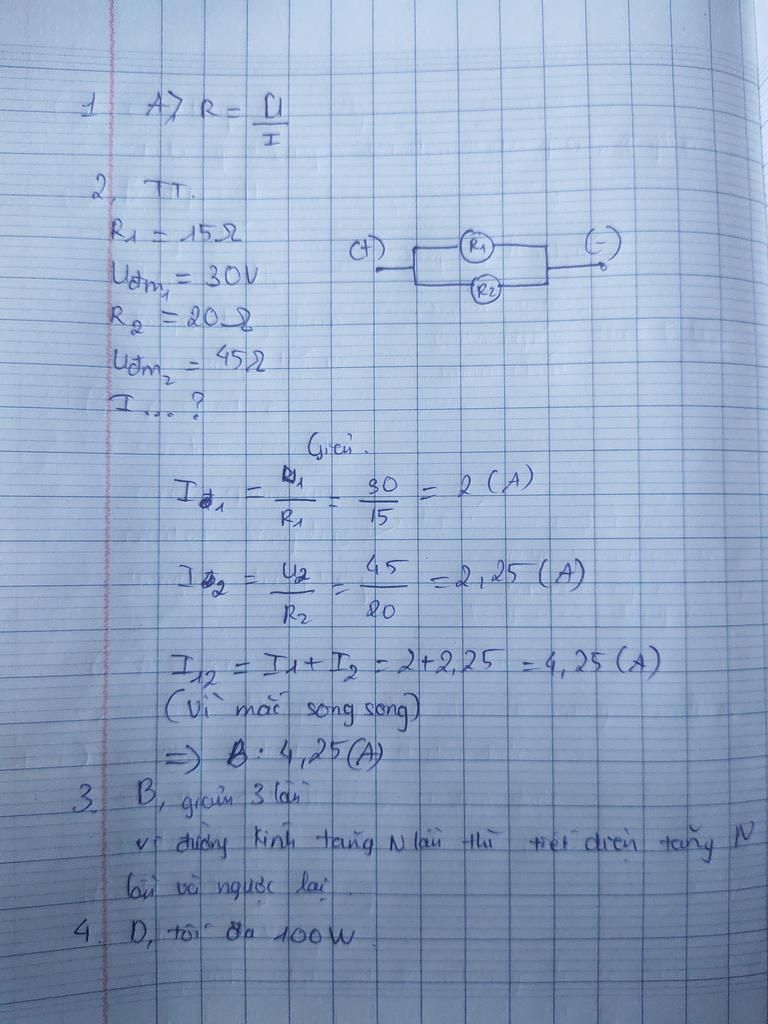 1 A> R = U/I
2, TT.
R1 = 15Ω
Uđm1 = 30V
(+) R1 (-)
R2
R2 = 20Ω
Uđm2 = 45Ω
I ... ?
Giải.
Iđ1 = U1/R1 = 30/15 = 2 (A)
Iđ2 = U2/R2 = 45/20 = 2,25 (A)
I12 = I1 + I2 = 2+2,25 = 4,25 (A)
(Vì mắc song song)
=> B: 4,25(A)
3. B, giảm 3 lần
vì đường kính tăng N lần thì tiết diện tăng N
lần và ngược lại.
4. D, tối đa 100W